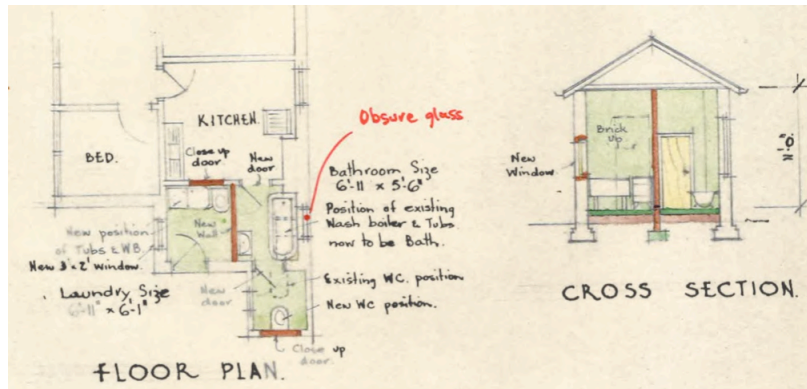 KITCHEN.
Obsure glass
BED.
Close up
door.
New
door
Bathroom Size
6'-11 x 5'-6"
Position of existing
Wash boiler & Tubs
now to be Bath.
New
Wall
New position
of Tubs & W.B.
New 3' x 2' window.
Laundry Size
6'-11" x 6'-1"
New
door
Existing WC. position
New WC position.
Close up
door.
FLOOR PLAN.
Brick
up
New
Window.
CROSS SECTION.